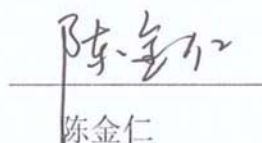 陈金仁
陈金仁